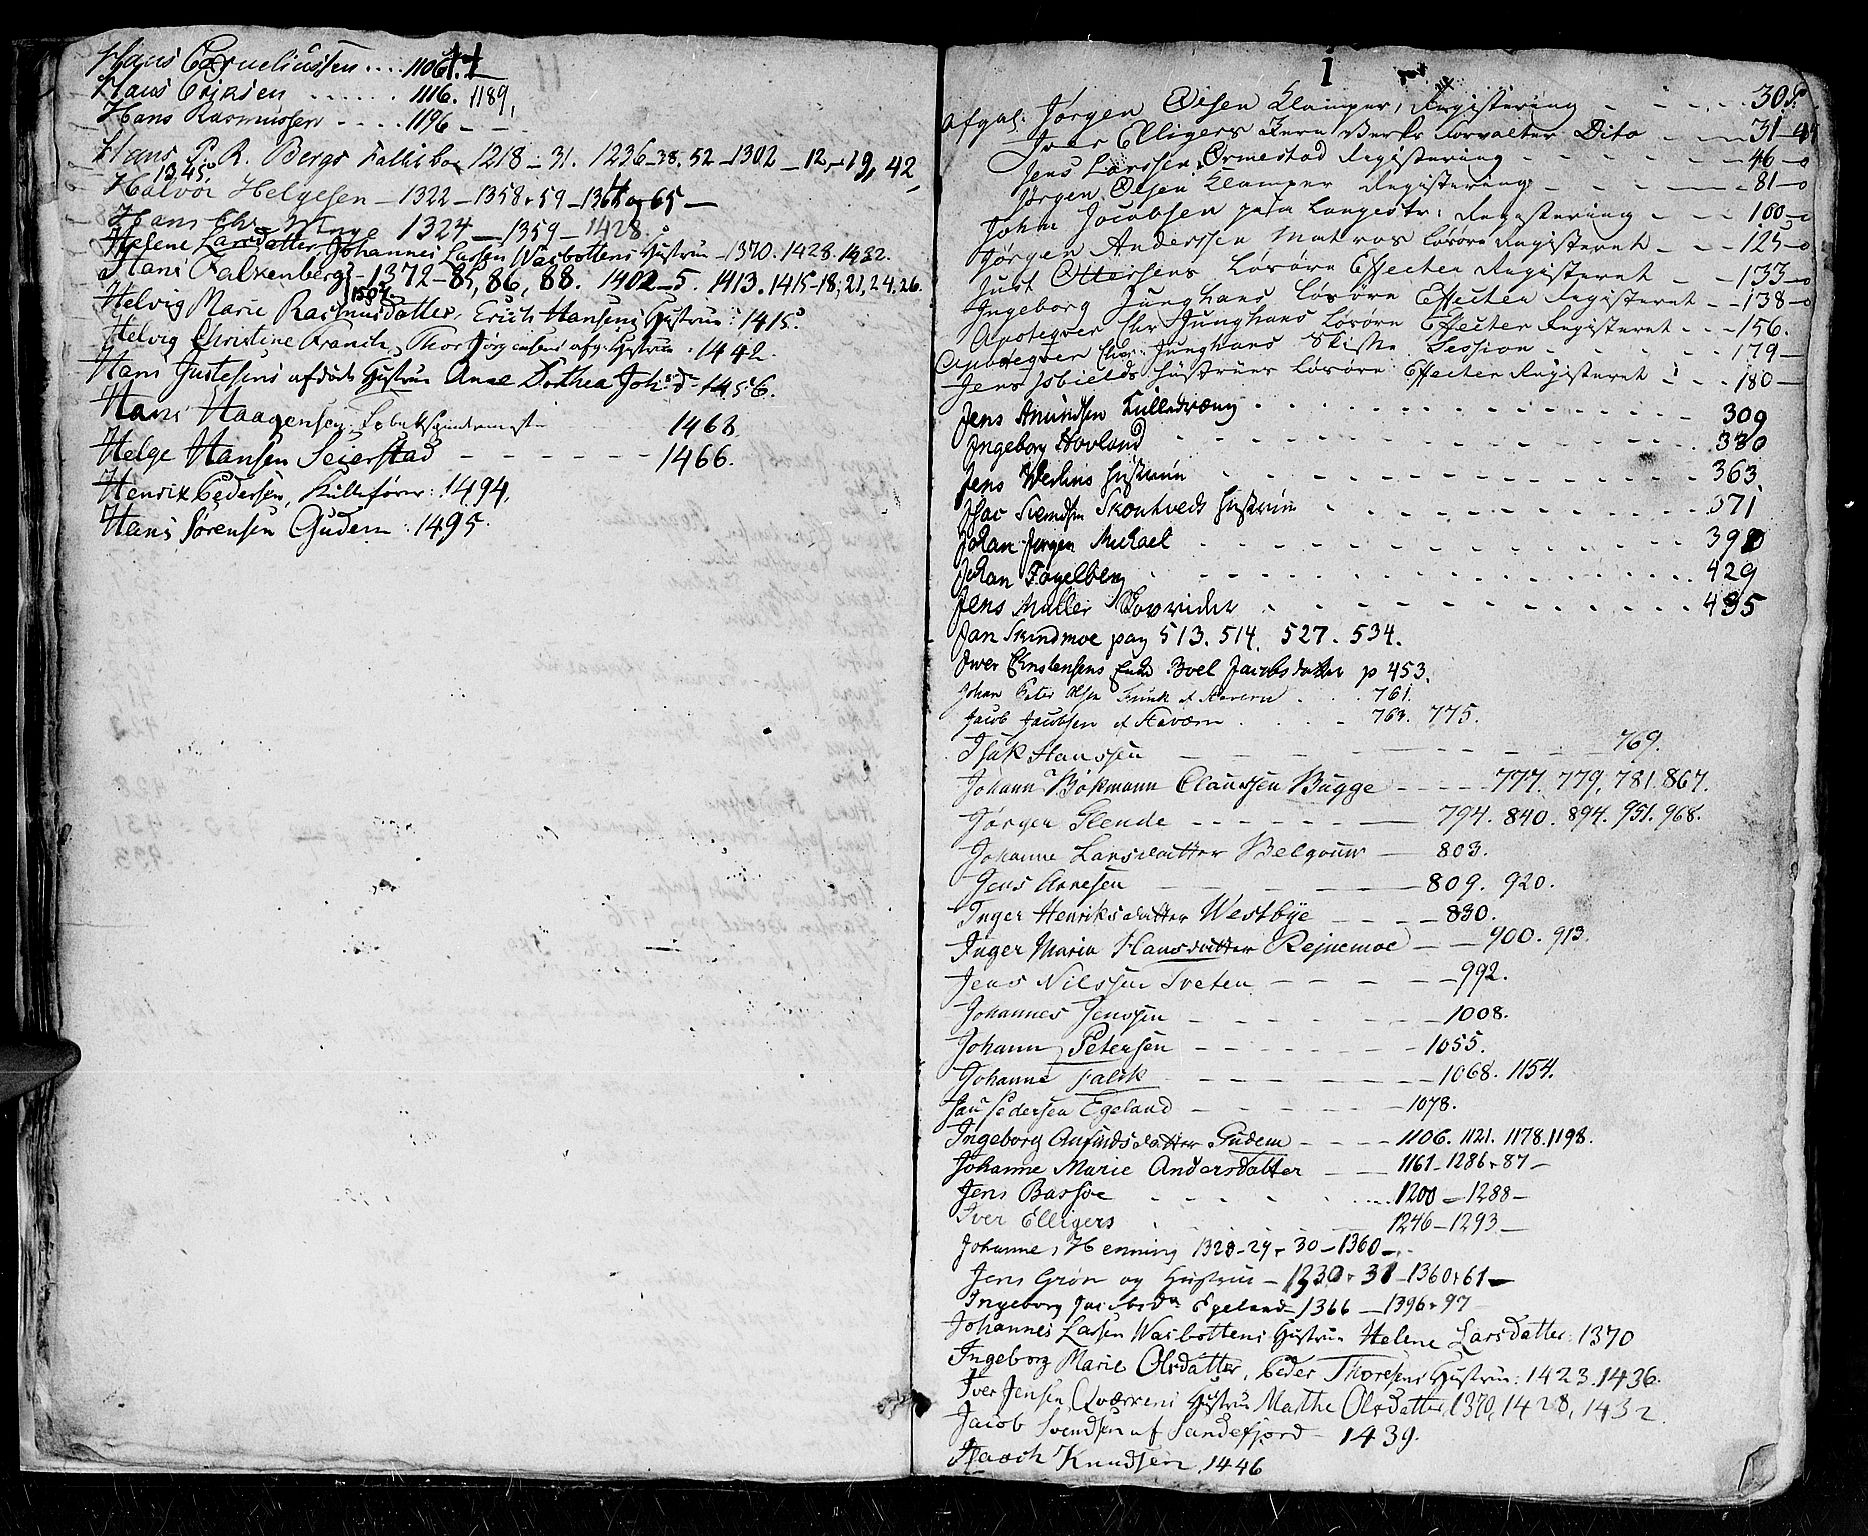 Hans Corneliussen... 1106.
Hans Eriksen ...... 1116. 1189,
Hans Rasmussen .... 1196 - -
Hans P. R. Bergs Fallitboe 1218-31. 1236-38. 52-1302-12, 19, 42,
1345.
Halvor Helgesen - 1322-1358, 59-1364 og 65-
Hans Chr. 1324-1359-1428.
Helene Larsdatter Johannes Larsen Wasbottens Hustrue - 1370. 1428. 1432.
Hans Falkenberg - 1372-85, 86, 88. 1402-5. 1413. 1415-18, 21, 24. 26.
1502
Helvig Marie Rasmusdatter, Erich Hansens Hustrue: 1415.
Helvig Christine Franch, Thor Jörgensens afg. Hustrue. 1442.
Hans Justesens afdöde Hustrue Anne Dorthea Johsd. - 1456.
Hans Haagensen, 1468.
Helge Hansen Seierstad - - - - - 1466.
Henrik Pedersen, Kullefører: 1494.
Hans Sørensen Gudem: 1495.
i
Afgal: Jørgen Olsen Klamper, Registering - - - 30
Iver Elligers Jern Verks Forvalter Dito - - 31-45
Jens Larssen Ormestad Registering - - - - 46-0
Jørgen Olsen Klamper Registering - - - 81-0
Johan Jacobsen paa Langestr: Registering - - - 100-0
Jørgen Anderssen Matros Løsøre Registeret - - - 125-0
Just Ottersens Løsøre Effecter Registeret - - 133-0
Ingeborg Junghans Løsøre Effecter Registeret - - 138-0
Apoteqver Chr Junghans Løsøre Effecter Registeret - - - 156.
Apoteqver Chr: Junghans Skifte Session - - - - 179-
Jens Isfields Hustrues Løsøre Effecter Registeret - - 180-
Jens Amundsen Kulledræng - - - - - 309
Ingeborg Hovland - - - - - 330
Jens Werlins Hustrue - - - - - 363.
Isac Svendsen Skontveds Hustrue - - - - 371
Johan Jørgen Michael - - - - - 398
Johan Fogelberg - - - - - 429
Jens Müller Skovrider - - - - - 435
Jan Skindmoe pag 513. 514. 527. 534.
Iver Christensens Enke Boel Jacobsdatter p 453.
Johan Peter Olsen Frink af Staværn . 761.
Jacob Jacobsen af Staværn . . . 763. 775.
Isak Hanssen - - - - - 769.
Johann Bökmann Claussen Bugge - - - - 777. 779, 781. 867.
Jørgen Glende - - - - - 794. 840. 894. 951. 968.
Johanne Larsdatter Belgouw - 803.
Jens Arnesen - - - - 809. 920.
Inger Henriksdatter Westbye - - - - 830.
Inger Maria Hansdatter Rejnemoe - - 900. 913.
Jens Nilssen Tveten - - - - 992.
Johannes Jenssen - - - - - 1008.
Johann Petersen - - - - - 1055.
Johanne Falck - - - - - 1068. 1154.
Jan Pedersen Egeland - - - - 1078.
Ingeborg Anfindsdatter Gudem - - - - 1106. 1121. 1178. 1198.
Johanne Marie Andersdatter - - - 1161-1286, 87-
Jens Bassøe - - - - - 1200-1288-
Iver Elligers - - - - - 1246-1293-
Johanne, Henning 1328-29, 30-1360-
Jens Grøn og Hustrue - 1330, 31-1360, 61-
Ingeborg Jacobsda Egeland-1366-1396, 97
Johannes Larsen Wasbottens Hustrue Helene Larsdatter: 1370
Ingeborg Marie Olsdatter, Peder Thoresens Hustrue: 1423. 1436.
Iver Jensen Qværrens Hustrue Marthe Olsdatter, 1370, 1428, 1432.
Jacob Svendsen af Sandefjord - 1439.
Isach Knudsen, 1446